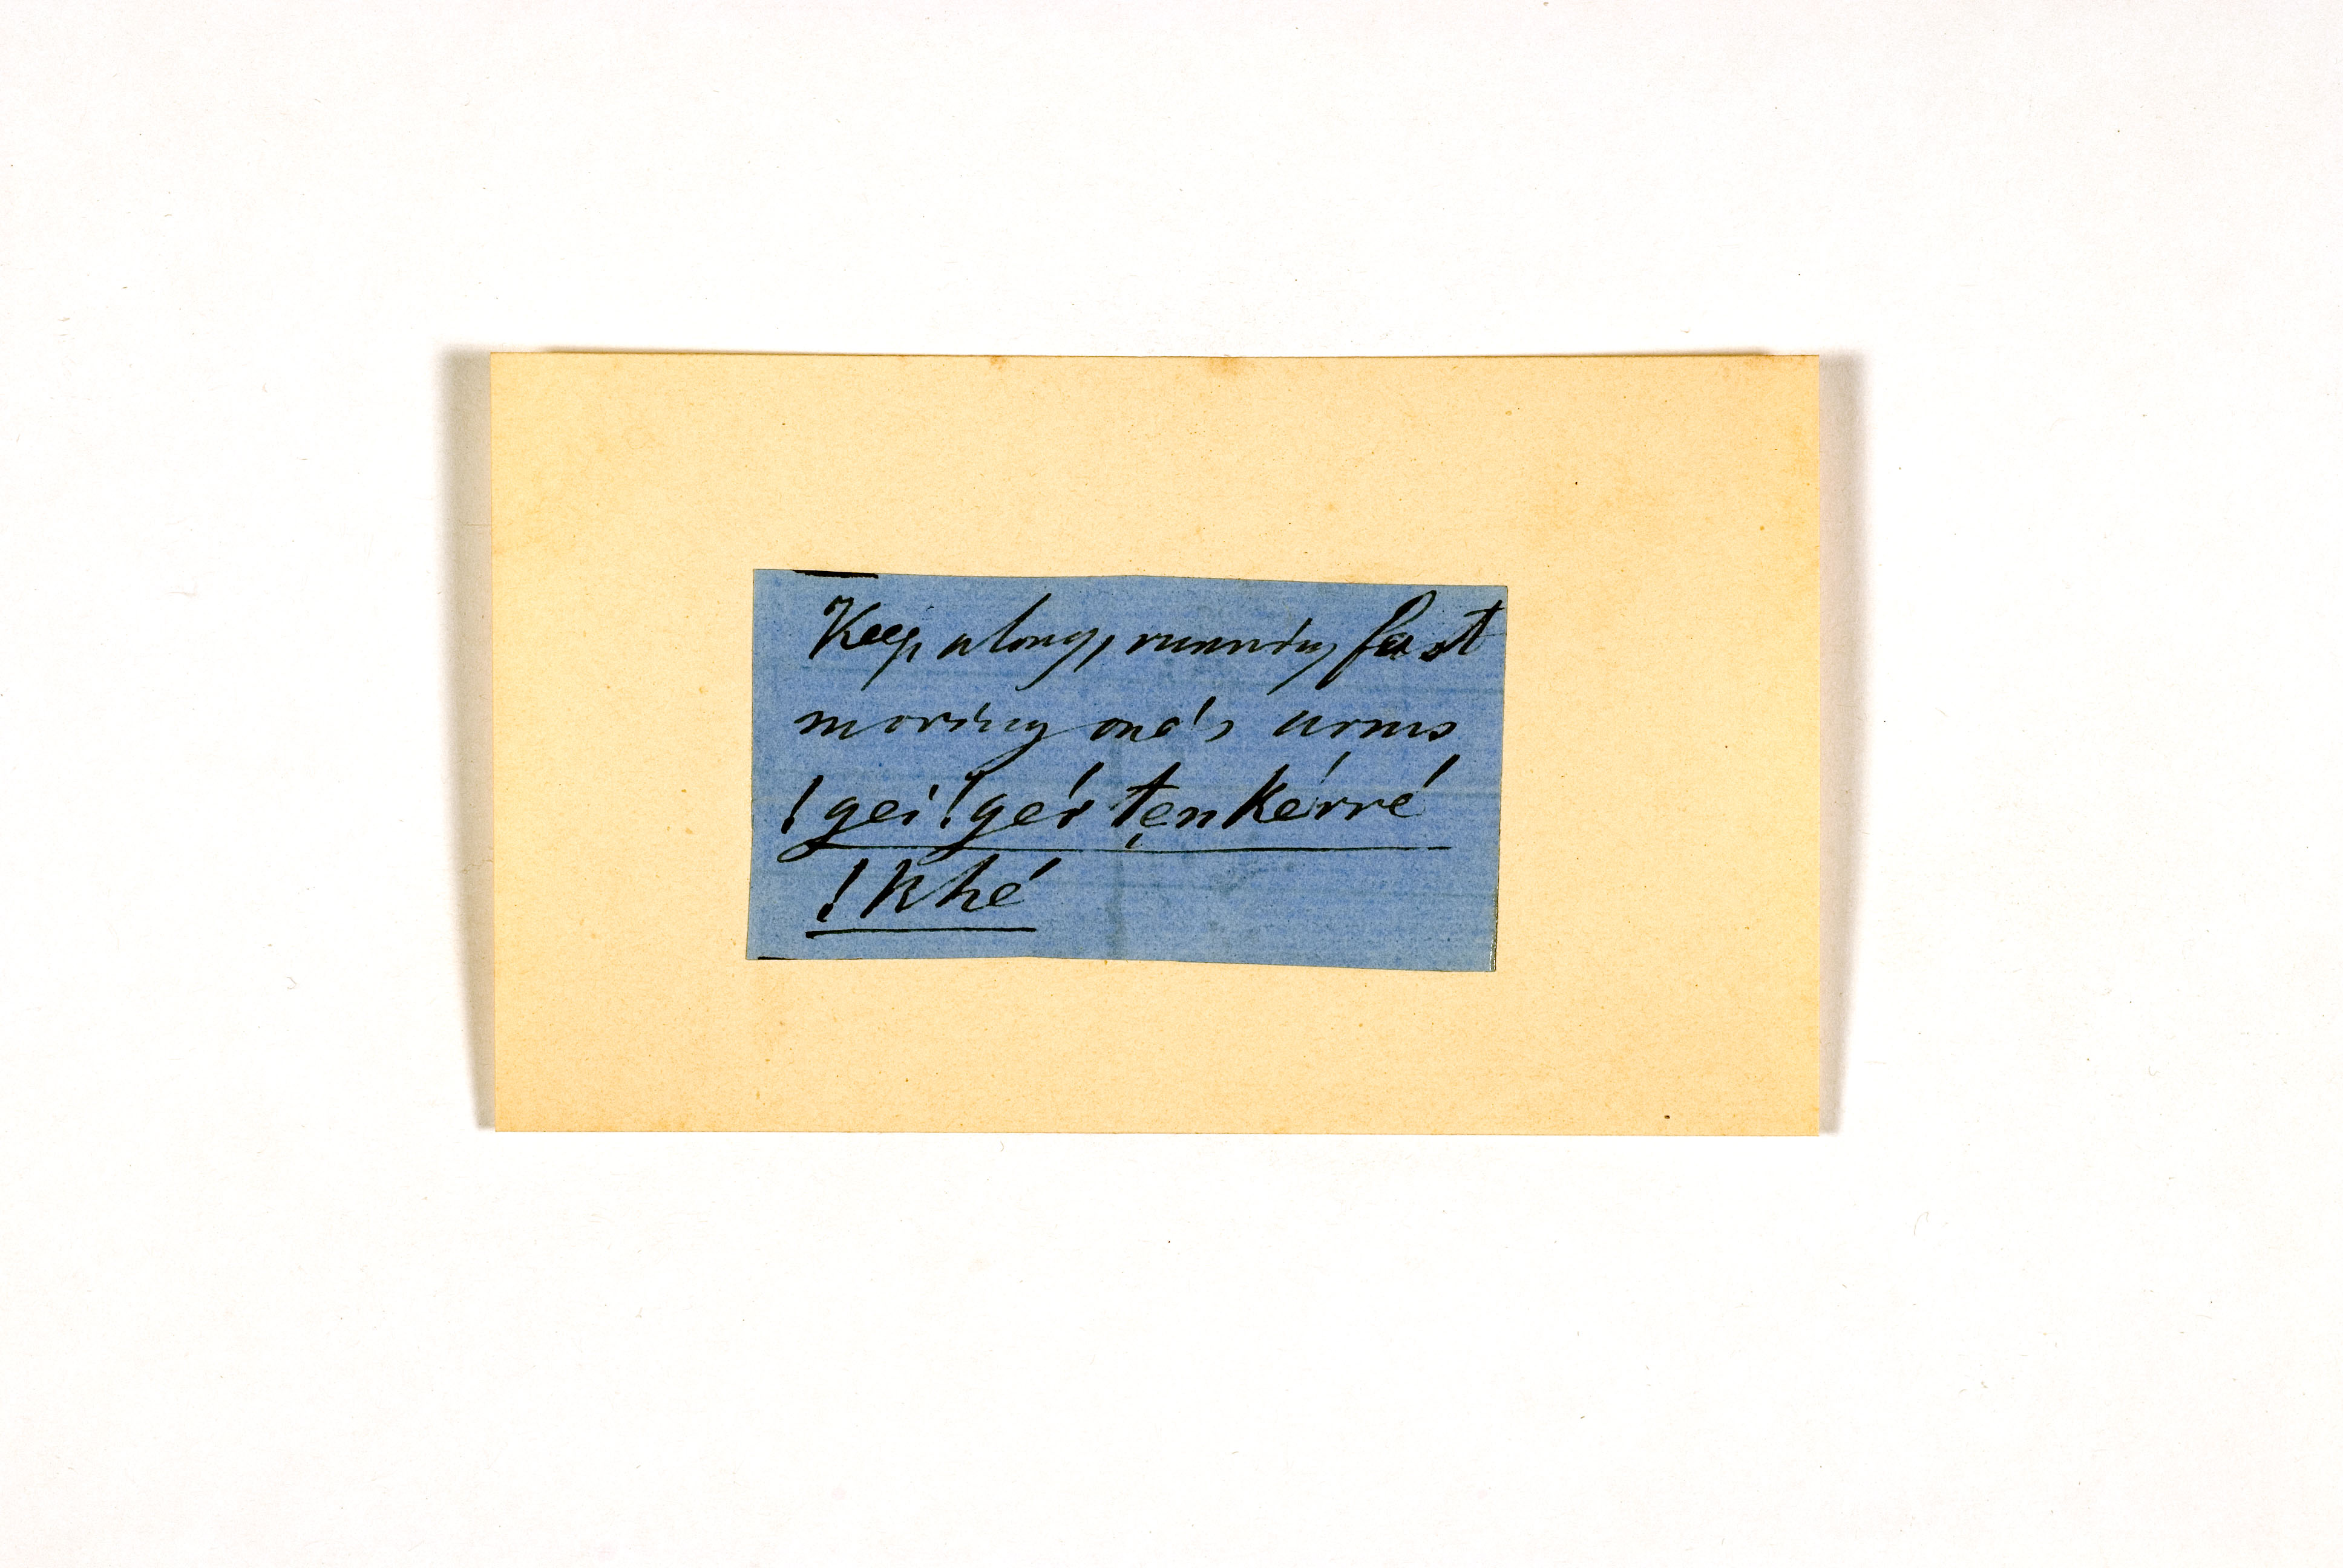 Keep along, running fast
moving one's arms
!gei!gei tẹnkérré
!khé